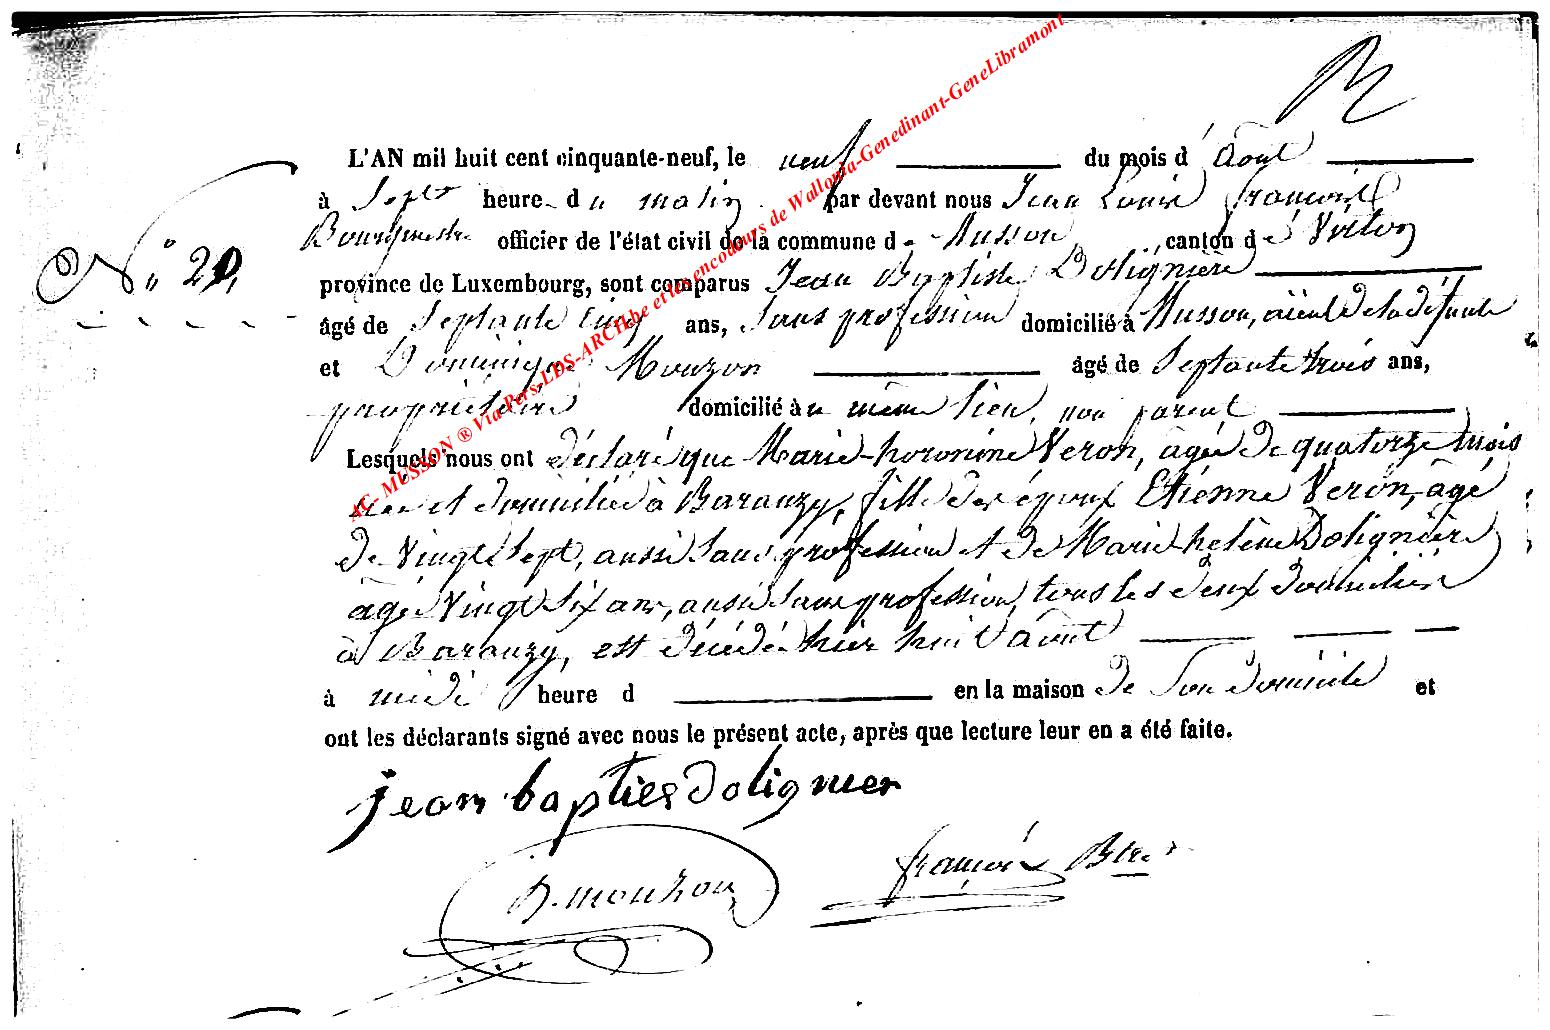 L'AN mil huit cent cinquante-neuf, le neuf du mois d'août
à Sept heure du matin par devant nous Jean Louis françois
Bourgmestre officier de l'état civil de la commune de Musson, canton de Virton
N° 20,
province de Luxembourg, sont comparus Jean Baptiste Dolignière
âgé de Septante Cinq ans, Sans profession domicilié à Musson, aïeul de la défunte
et Dominique Mouzon âgé de Septante trois ans,
propriétaire domicilié au même lieu, non parent
Lesquels nous ont déclaré que Marie-honorine Veron, âgée de quatorze mois
née et domiciliée à Baranzy, fille des époux Etienne Veron, âgé
de Vingt Sept, aussi Sans profession et de Marie-helène Dolignière
âgée Vingt Six ans, aussi Sans profession, tous les deux domiciliés
à Baranzy, est décédée hier huit août
à midi heure d en la maison de Son domicile et
ont les déclarants signé avec nous le présent acte, après que lecture leur en a été faite.
jean bapties dolignier
D. mouzon
françois Btre
AC- MUSSON ® Via Pers-LDS-ARCH.be et les encodeurs de Wallonia-Genedinant-GeneLibramont